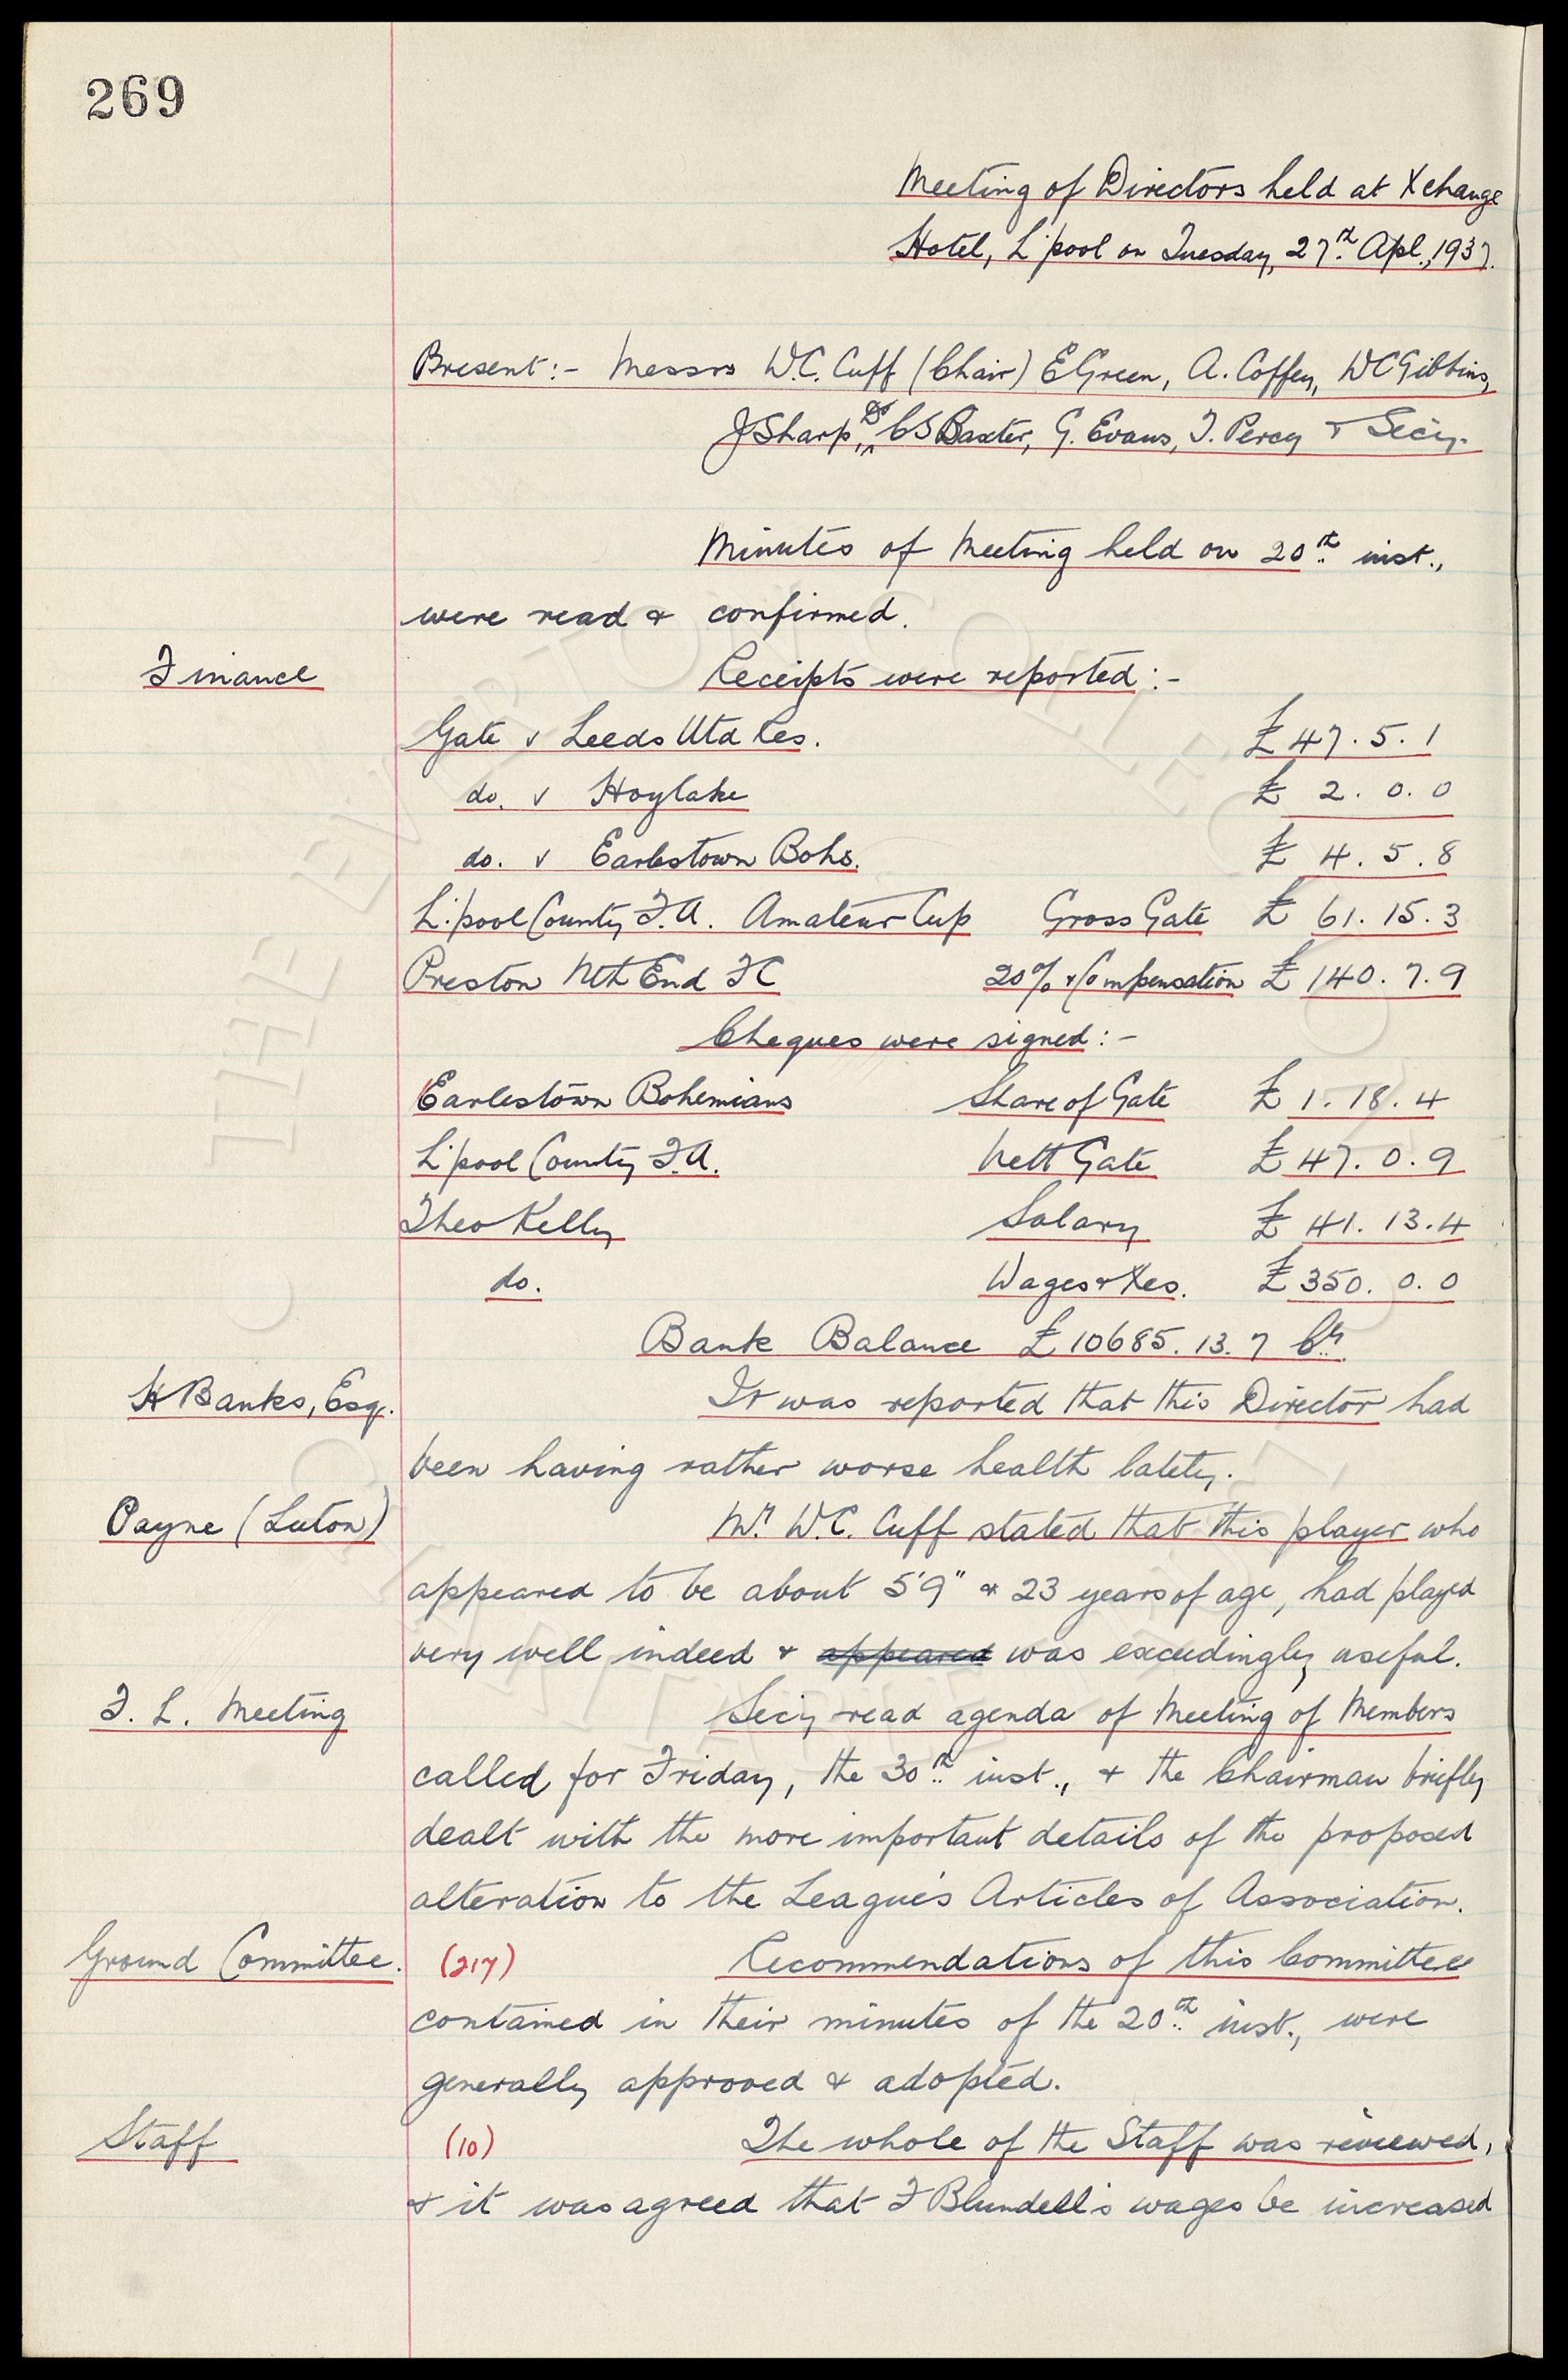 269
Meeting of Directors held at Xchange
Hotel, L'pool on Tuesday, 27th Apl., 1937.
Present:- Messrs W.C. Cuff (Chair) E Green, A. Coffey, WC Gibbins,
J Sharp, Dr CS Baxter, G. Evans, T. Percy & Secy.
Minutes of Meeting held on 20th inst.,
were read & confirmed.
Finance Receipts were reported:-
Gate v Leeds Utd Res. £47.5.1
do. v Hoylake £ 2.0.0
do. v Earlestown Bohs. £ 4.5.8
L'pool County F.A. Amateur Cup Gross Gate £ 61.15.3
Preston Nth End FC 20% & Compensation £ 140.7.9
Cheques were signed:-
Earlestown Bohemians Share of Gate £ 1.18.4
L'pool County F.A. Nett Gate £ 47.0.9
Theo Kelly Salary £ 41.13.4
do. Wages & Xes. £ 350.0.0
Bank Balance £ 10685.13.7 Cr.
H Banks, Esq. It was reported that this Director had
been having rather worse health lately.
Payne (Luton) Mr. W.C. Cuff stated that this player who
appeared to be about 5'9" & 23 years of age, had played
very well indeed & appeared was exceedingly useful.
F. L. Meeting Secy read agenda of Meeting of Members
called for Friday, the 30th inst., & the Chairman briefly
dealt with the more important details of the proposed
alteration to the League's Articles of Association.
Ground Committee. (217) Recommendations of this Committee
contained in their minutes of the 20th inst., were
generally approved & adopted.
Staff (10) The whole of the Staff was reviewed,
& it was agreed that F Blundell's wages be increased